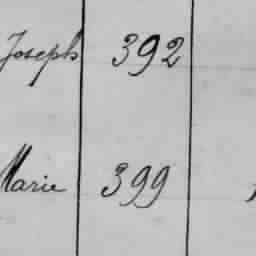 Joseph 392
Marie 399